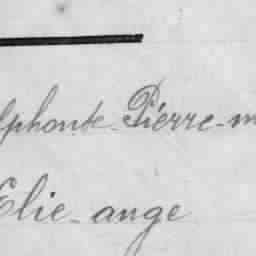 lphonse-Pierre-m
Elie-ange